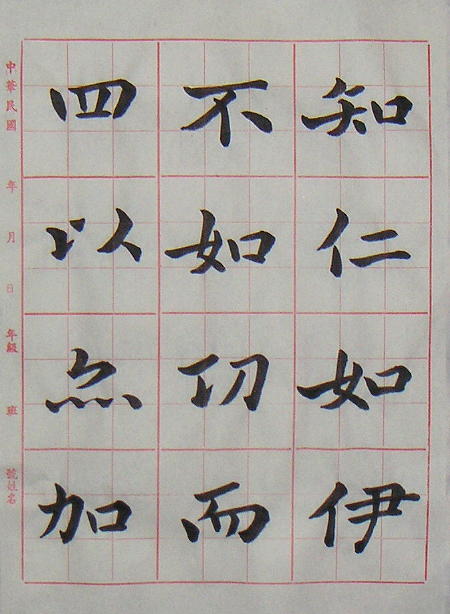 知仁如伊
不如㓛而
四以加
中華民國　年　月　日　年級　班　號姓名